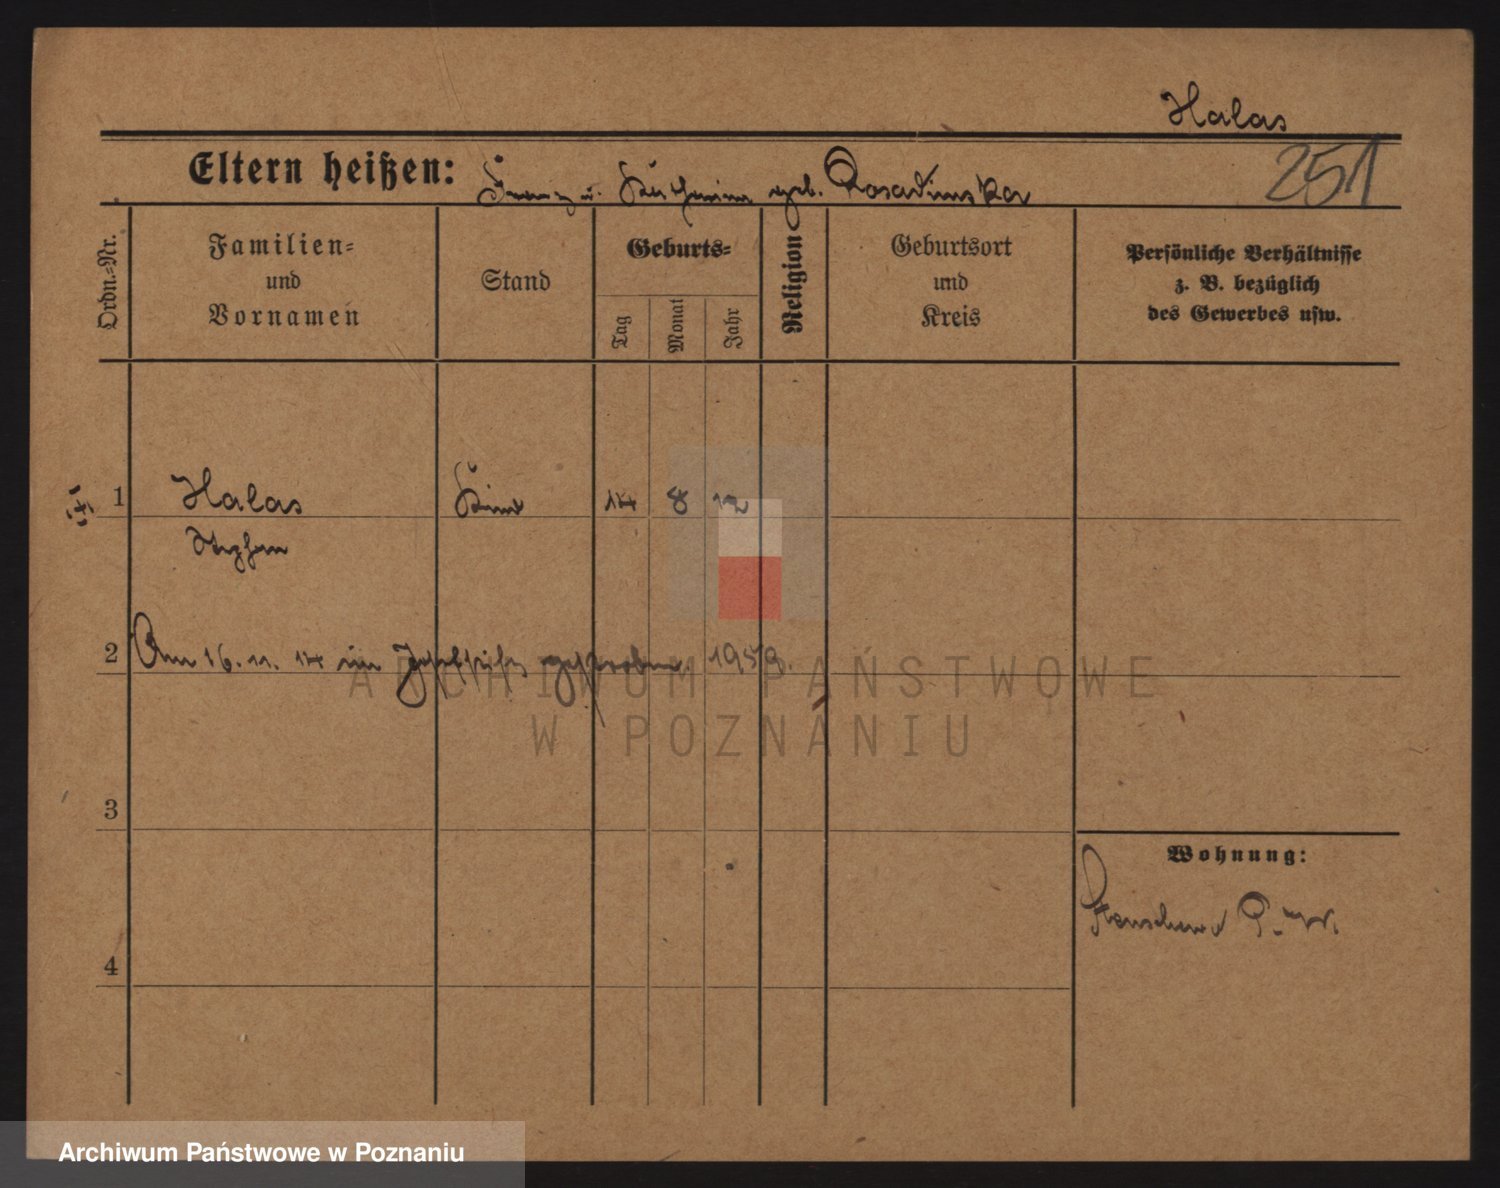 Halas
Eltern heißen: Franz u. Katharina geb.
251
Ordn.-Nr.
Familien-
und
Vornamen
Stand
Geburts-
Tag
Monat
Jahr
Religion
Geburtsort
und
Kreis
Persönliche Verhältnisse
z. B. bezüglich
des Gewerbes usw.
1 Halas Kind 14 8 12
Stephan
2 Am 16. 11. 14 im gestorben.
3
4
Wohnung:
P. W.
ARCHIWUM PAŃSTWOWE
W POZNANIU
Archiwum Państwowe w Poznaniu